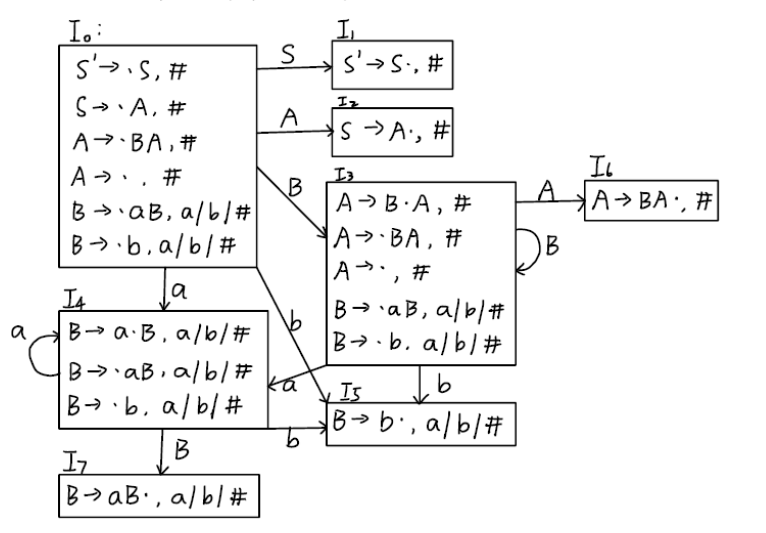 I₀:
S'→·S, #
S→·A, #
A→·BA, #
A→·, #
B→·aB, a/b/#
B→·b, a/b/#
S
I₁
S'→S·, #
A
I₂
S→A·, #
B
I₃
A→B·A, #
A→·BA, #
A→·, #
B→·aB, a/b/#
B→·b. a/b/#
A
I₆
A→BA·, #
B
a
b
I₄
B→a·B, a/b/#
B→·aB, a/b/#
B→·b. a/b/#
a
a
b
b
I₅
B→b·, a/b/#
B
I₇
B→aB·, a/b/#